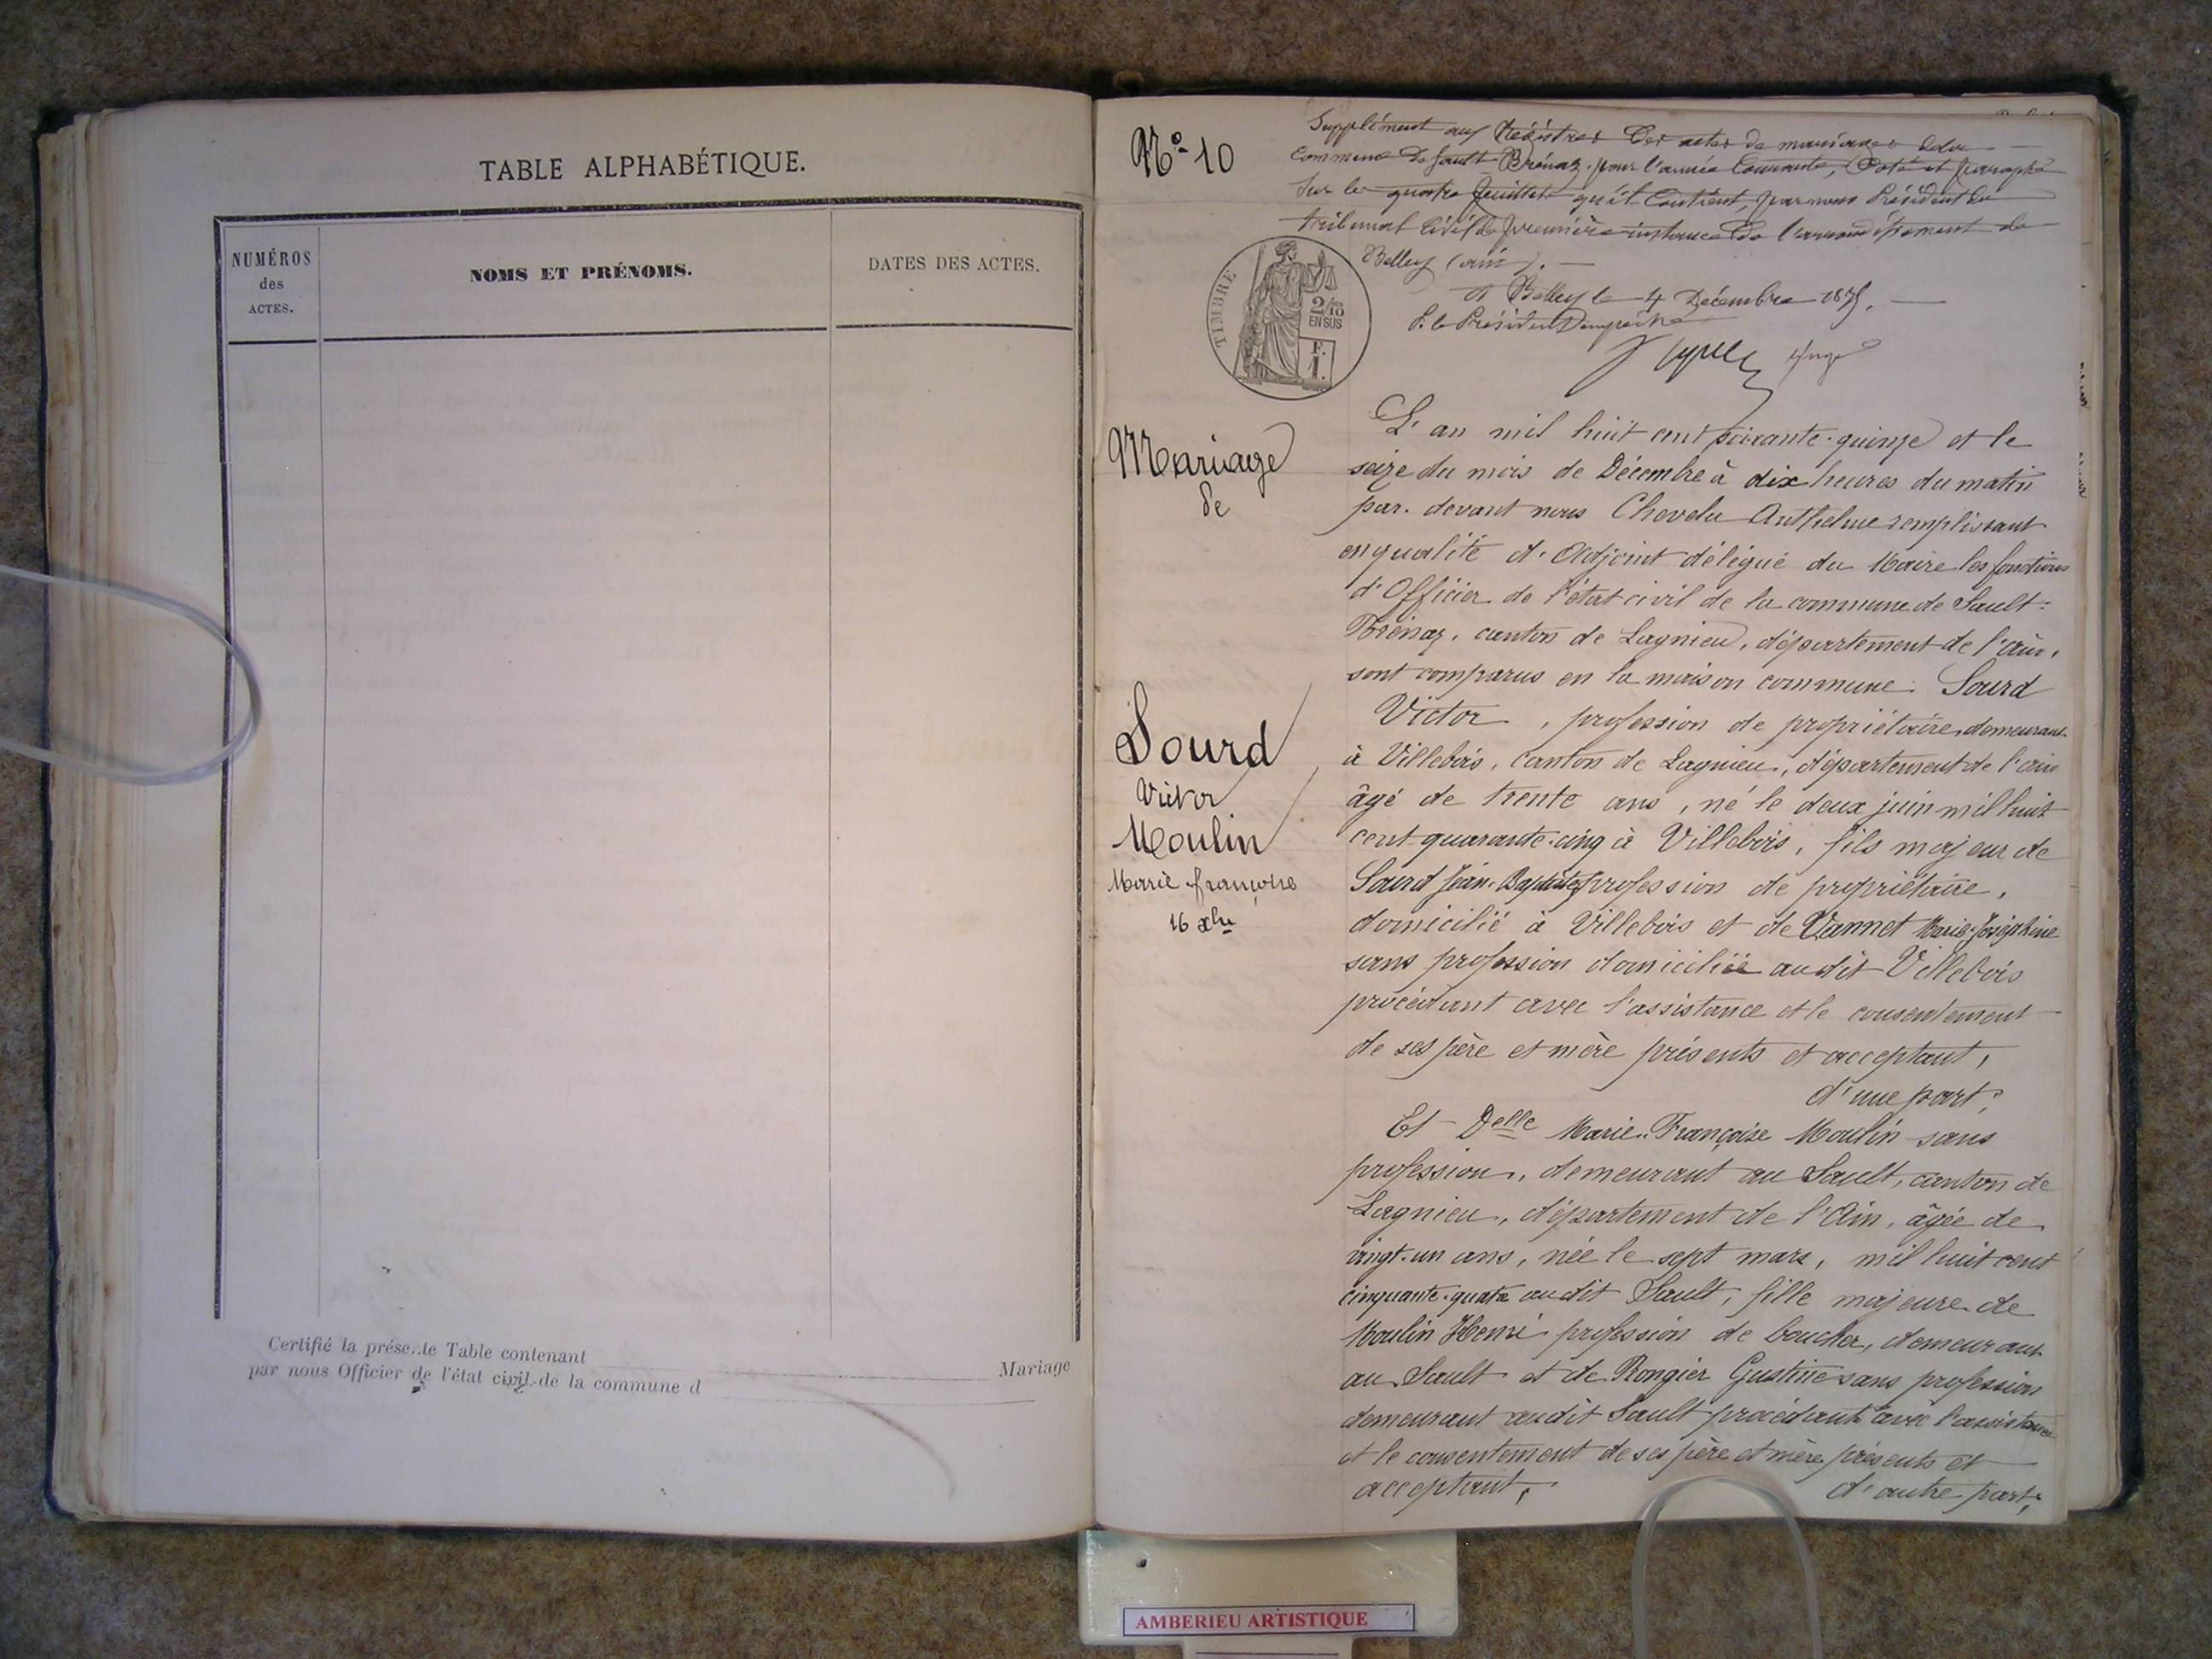 TABLE ALPHABÉTIQUE.
NUMÉROS
des
ACTES.
NOMS ET PRÉNOMS.
DATES DES ACTES.
Certifié la prése..te Table contenant
Mariage
par nous Officier de l'état civil de la commune d
No 10
Supplément aux Régistres des actes de mariages de la
commune de Sault-Brénaz, pour l'année Courante, Coté et paraphé
sur les quatre feuillets qu'il Contient, par nous Président du
tribunal Civil de première instance de l'arrondissement de
Belley (ain).
A Belley le 4 Décembre 1875.
P. le Président
Juge
TIMBRE
2/10
EN SUS
F.
1.
Mariage
de
Sourd
Victor
Moulin
Marie françoise
16 xbre
L'an mil huit cent soixante-quinze et le
seize du mois de Décembre à dix heures du matin
par-devant nous Chevelu Anthelme remplissant
en qualité d'Adjoint délégué du Maire les fonctions
d'Officier de l'état civil de la commune de Sault-
Brénaz, canton de Lagnieu, département de l'ain,
sont comparus en la maison commune. Sourd
Victor, profession de propriétaire, demeurant
à Villebois, canton de Lagnieu, département de l'ain
âgé de trente ans, né le deux juin mil huit
cent quarante-cinq à Villebois, fils majeur de
Sourd Jean-Baptiste profession de propriétaire,
domicilié à Villebois et de Vannet Marie-Joséphine
sans profession domiciliée audit Villebois
procédant avec l'assistance et le consentement
de ses père et mère présents et acceptant,
d'une part;
Et Delle Marie-Françoise Moulin sans
profession, demeurant au Sault, canton de
Lagnieu, département de l'Ain, âgée de
vingt-un ans, née le sept mars, mil huit cent
cinquante-quatre audit Sault, fille majeure de
Moulin Henri profession de boucher, demeurant
au Sault et de Rongier Gustine sans profession
demeurant audit Sault procédant avec l'assistance
et le consentement de ses père et mère présents et
acceptant, d'autre part;
AMBERIEU ARTISTIQUE